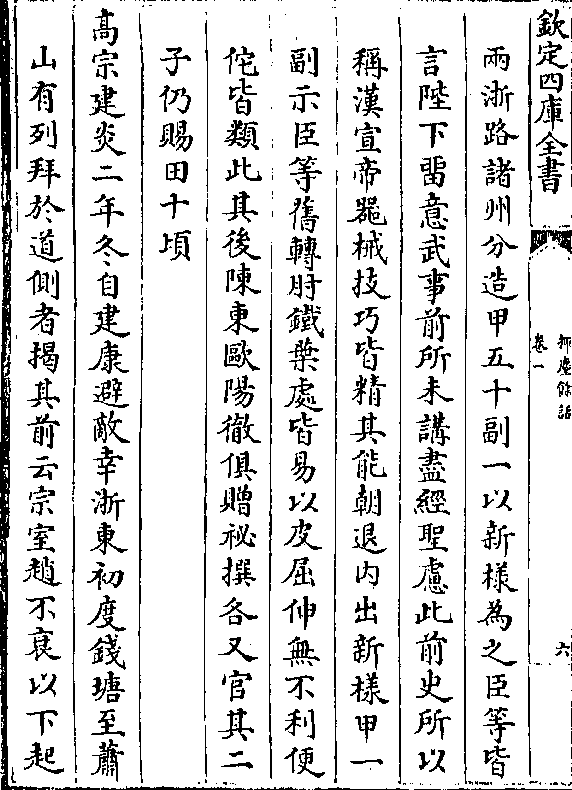 欽定四庫全書
揮麈餘話
卷一
六
兩浙路諸州分造甲五十副一以新様為之臣等皆
言陛下留意武事前所未講盡經聖慮此前史所以
稱漢宣帝器械技巧皆精其能朝退内出新様甲一
副示臣等舊轉肘鐵葉處皆易以皮屈伸無不利便
佗皆類此其後陳東歐陽徹俱贈祕撰各又官其二
子仍賜田十頃
髙宗建炎二年冬自建康避敵幸浙東初度錢塘至蕭
山有列拜於道側者揭其前云宗室趙不衰以下起